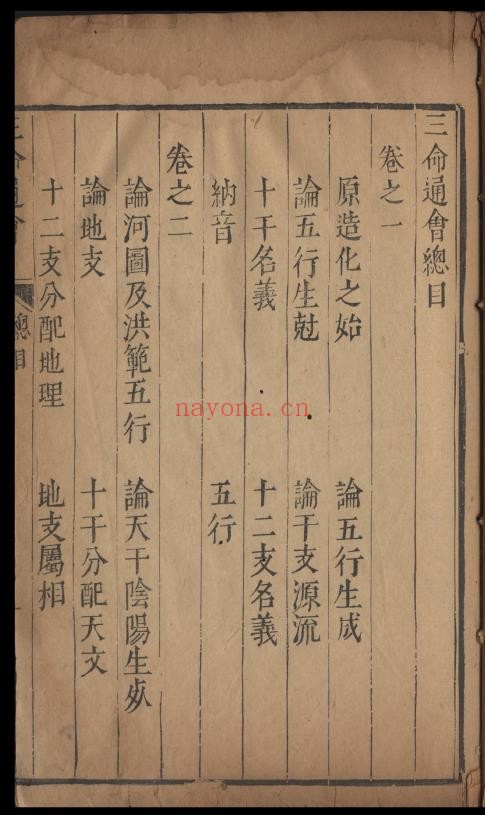 三命通會總目
卷之一
原造化之始 論五行生成
論五行生尅 論干支源流
十干名義 十二支名義
納音 五行
卷之二
論河圖及洪範五行 論天干陰陽生死
論地支 十干分配天文
十二支分配地理 地支屬相
三命通會 總目
nayona.cn